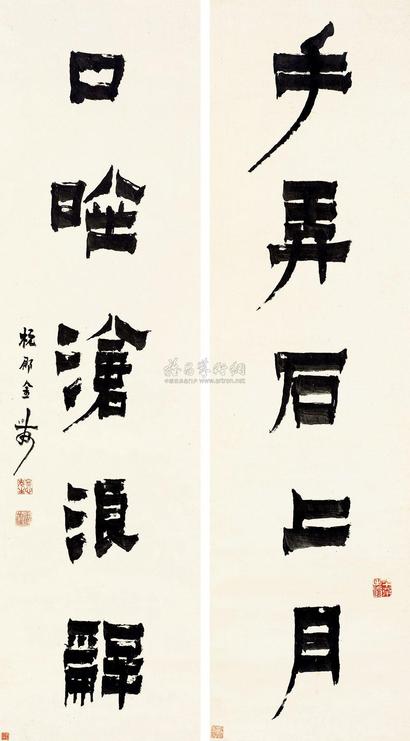 手弄石上月
口滄浪辭
杭郡金農
雅昌藝術網
www.artron.net